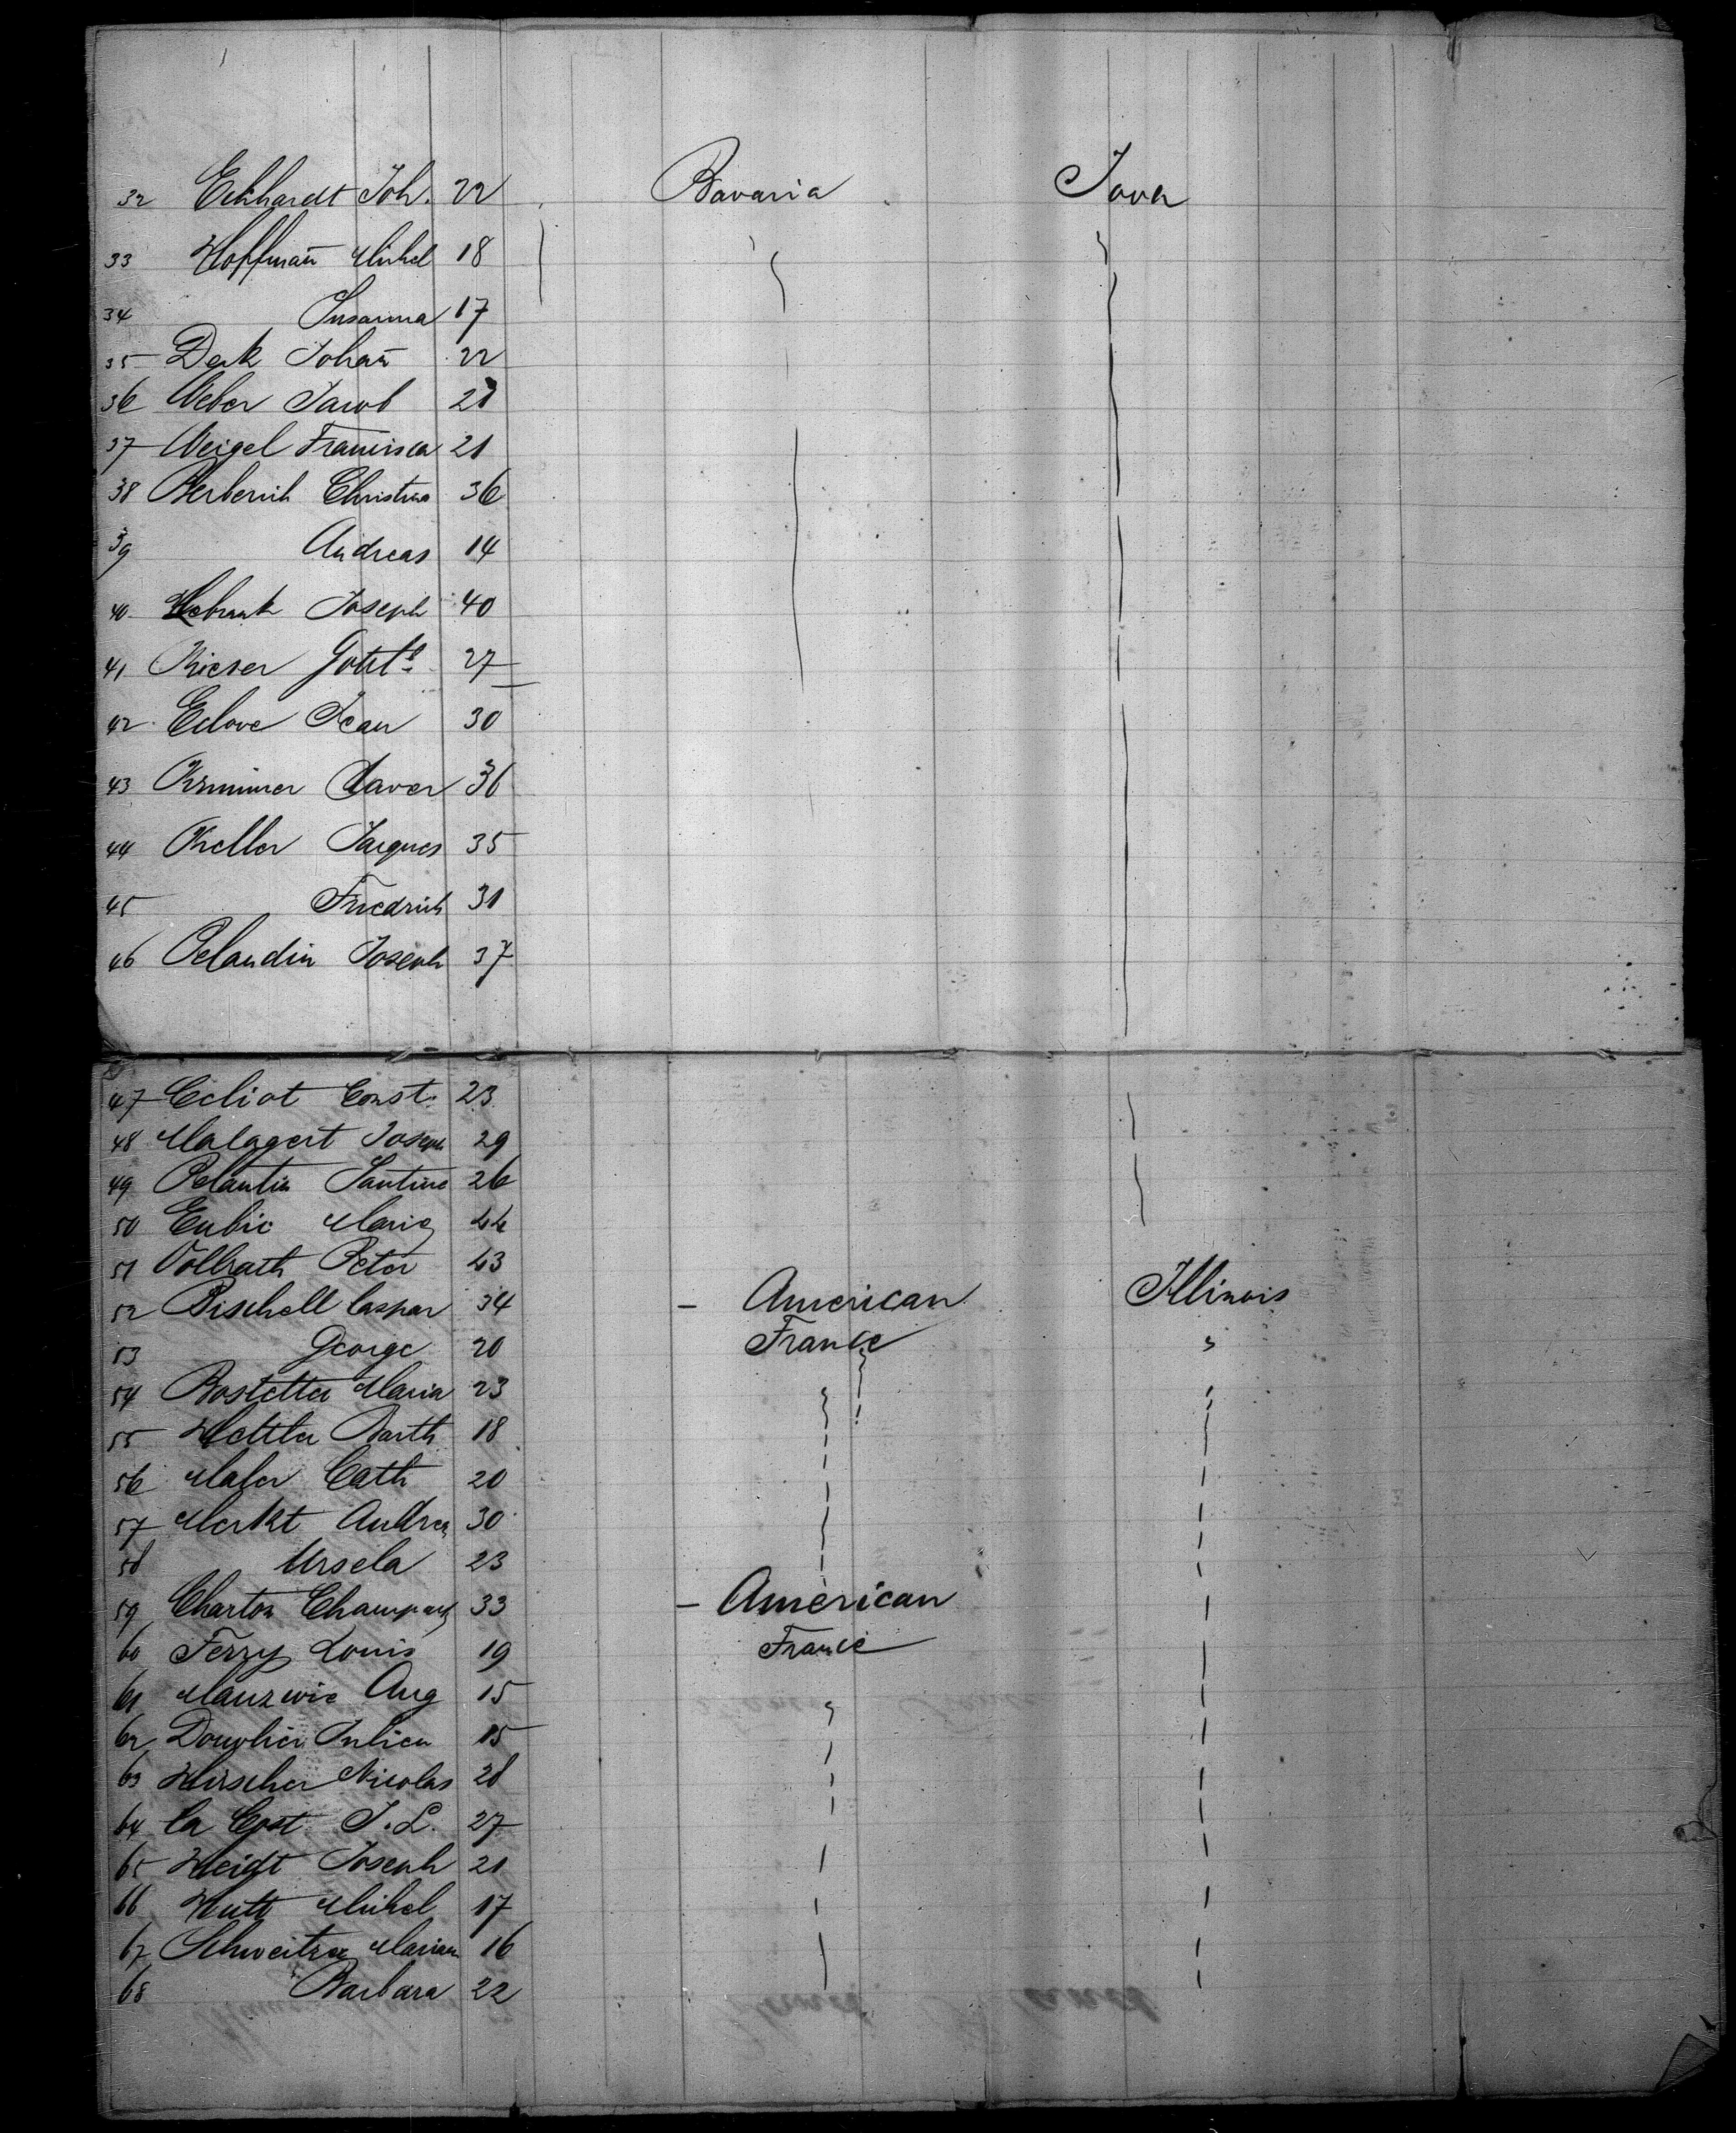 32 Eckhardt Joh. 22 Bavaria Iowa
33 Hoffmañ Michel 18
34 Susanna 17
35 Derk Johañ 22
36 Weber Jacob 21
37 Weigel Francisca 21
38 Berberich Christine 36
39 Andreas 14
40 Joseph 40
41 Kieser Gottl. 27
42 Jean 30
43 Xaver 36
44 Keller Jacques 35
45 Friedrich 31
46 Pelandin Joseph 37
47 Celiot Const. 23
48 Malagert Joseph 29
49 Pelantin 26
50 Marie 44
51 Vollrath Peter 43
52 Bischell Caspar 34 – American Illinois
53 George 20 France "
54 Bostetter Maria 23
55 Barth 18
56 Maler Cath 20
57 Merkt Andrea 30
58 Ursela 23
59 Charton 33 – American
60 Ferry Louis 19 France
61 Aug 15
62 15
63 Hirscher Nicolas 28
64 La Cost J. L. 27
65 Heidt Joseph 21
66 Hutt Michel 17
67 Schweitzer Mariam 16
68 Barbara 22